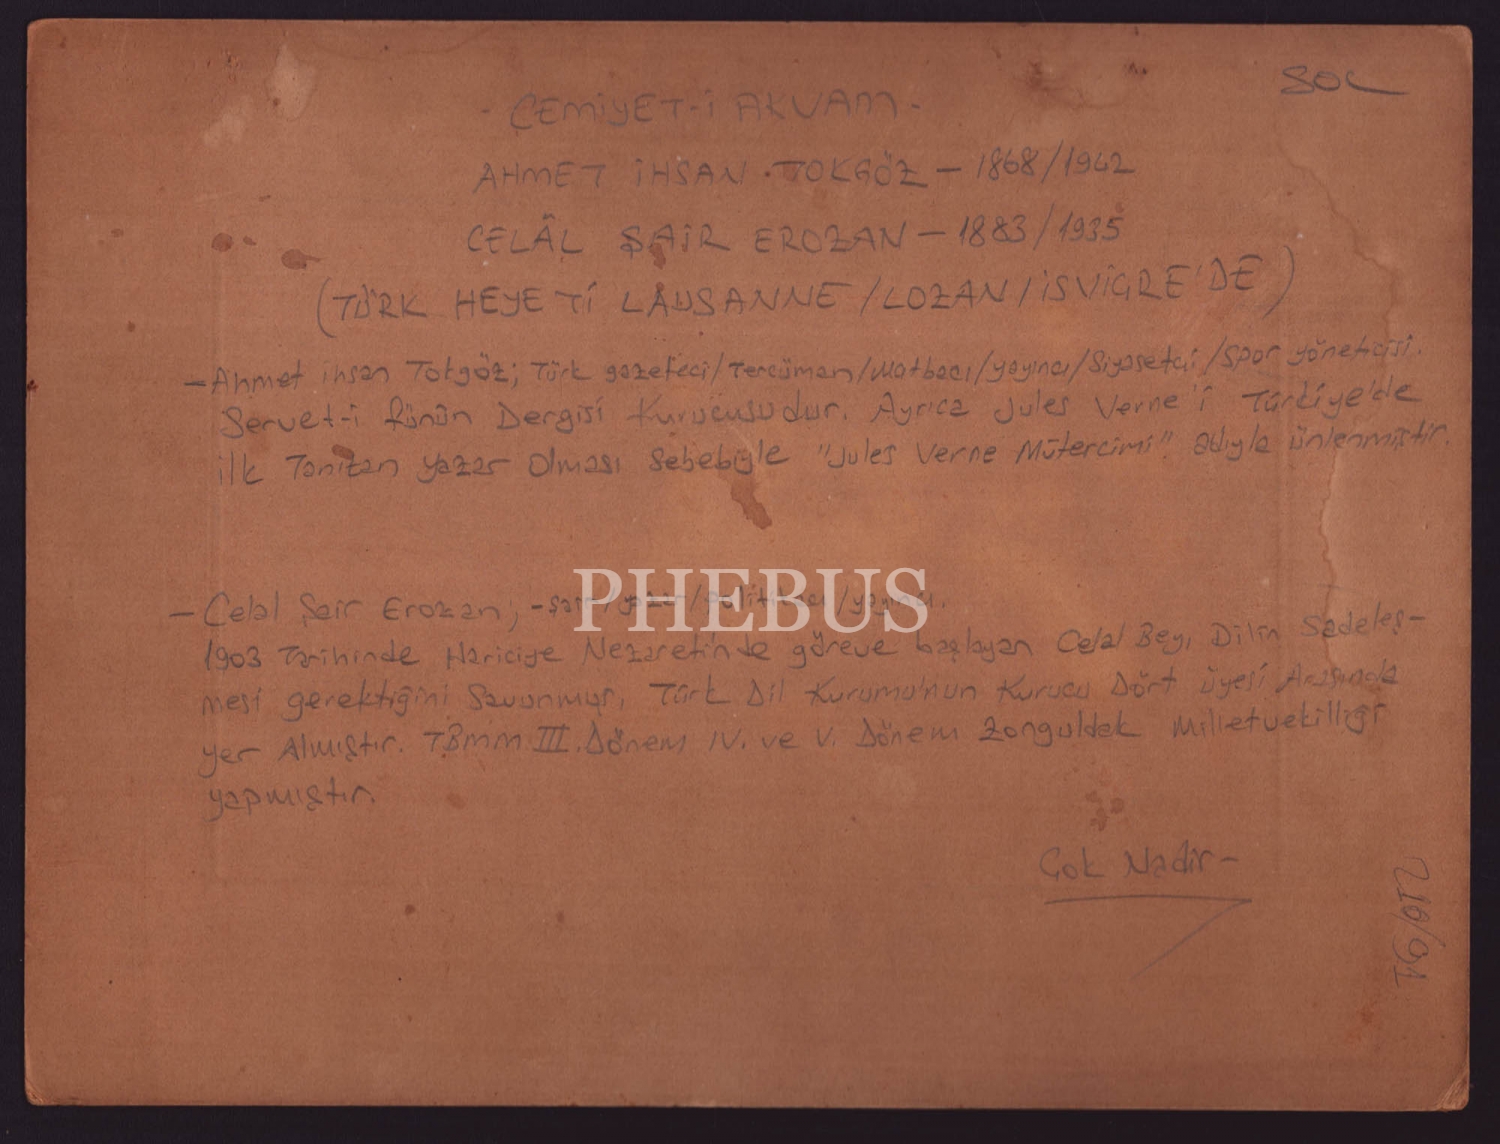 SOL
- CEMİYET-İ AKVAM -
AHMET İHSAN TOKGÖZ - 1868/1942
CELÂL SAİR EROZAN - 1883/1935
(TÜRK HEYETİ LAUSANNE /LOZAN/İSVİÇRE'DE)
- Ahmet ihsan Tokgöz; Türk gazeteci/Tercüman/Matbacı/yayıncı/Siyasetçi/Spor yöneticisi.
Servet-i fünûn Dergisi Kurucusudur. Ayrıca Jules Verne'i Türkiye'de
ilk Tanıtan yazar Olması Sebebiyle "Jules Verne Mütercimi" adıyla ünlenmiştir.
PHEBUS
- Celal Sair Erozan; - şair/yazar/politikacı/yayıncı.
1903 Tarihinde Hariciye Nezaretinde göreve başlayan Celal Bey, Dilin Sadeleş-
mesi gerektiğini Savunmuş, Türk Dil Kurumu'nun Kurucu Dört üyesi Arasında
yer Almıştır. TBMM III. Dönem IV. ve V. Dönem Zonguldak Milletvekilliği
yapmıştır.
Çok Nadir -